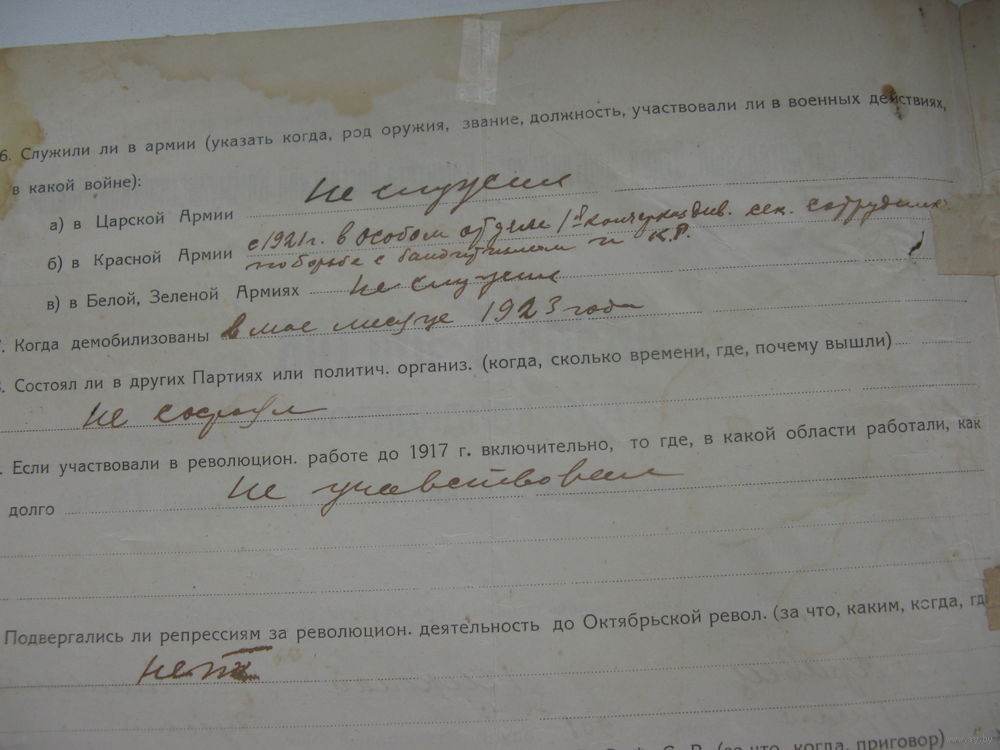 6. Служили ли в армии (указать когда, род оружия, звание, должность, участвовали ли в военных действиях,
в какой войне):
а) в Царской Армии не служил
б) в Красной Армии с 1921 г. в особом отделе 1й кав. див. сек. сотрудник
по борьбе с бандитизмом и К.Р.
в) в Белой, Зеленой Армиях не служил
7. Когда демобилизованы в мае месяце 1923 года
Состоял ли в других Партиях или политич. организ. (когда, сколько времени, где, почему вышли)
не состоял
Если участвовали в революцион. работе до 1917 г. включительно, то где, в какой области работали, как
долго не участвовал
Подвергались ли репрессиям за революцион. деятельность до Октябрьской револ. (за что, каким, когда, гд
нет
(за что, когда, приговор)